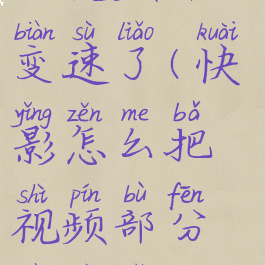 biàn sù liǎo kuài
变速了(快
yǐng zěn me bǎ
影怎么把
shì pín bù fēn
视频部分